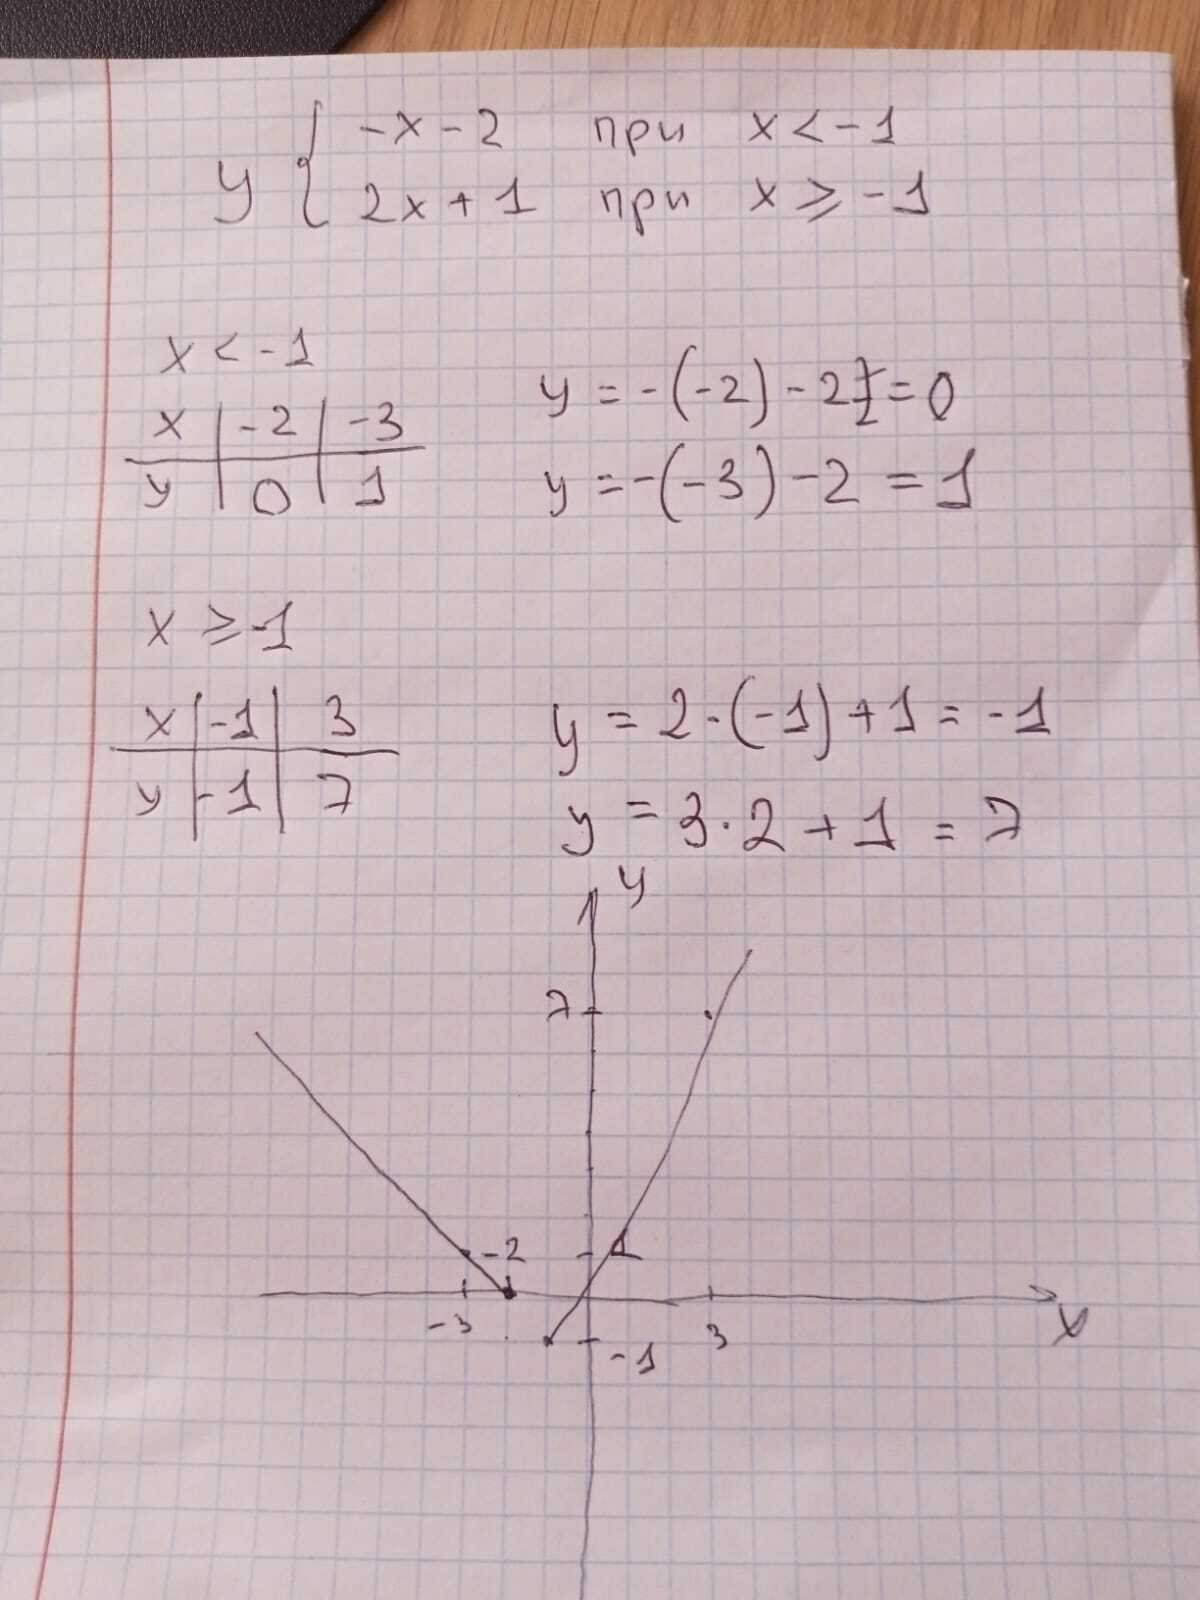 y { -x - 2 при x < -1
2x + 1 при x ⩾ -1
x < -1
x | -2 | -3
y | 0 | 1
y = -(-2) - 2 = 0
y = -(-3) - 2 = 1
x ⩾ -1
x | -1 | 3
y | -1 | 7
y = 2·(-1) + 1 = -1
y = 3·2 + 1 = 7
y
7
-2 1
-3 -1 3 x